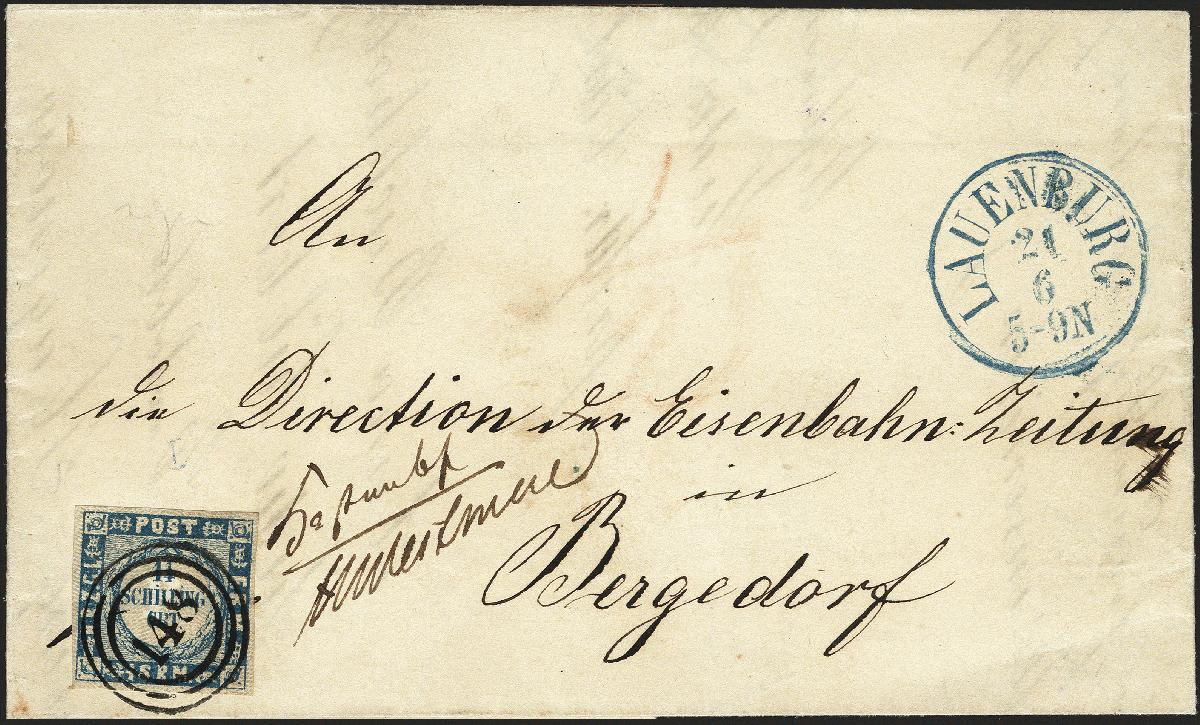 An
die Direction der Eisenbahn-Zeitung
in
Bergedorf
LAUENBURG
21
6
5-9N
POST
1¼
SCHILLING
CRT.
S.R.M.
148